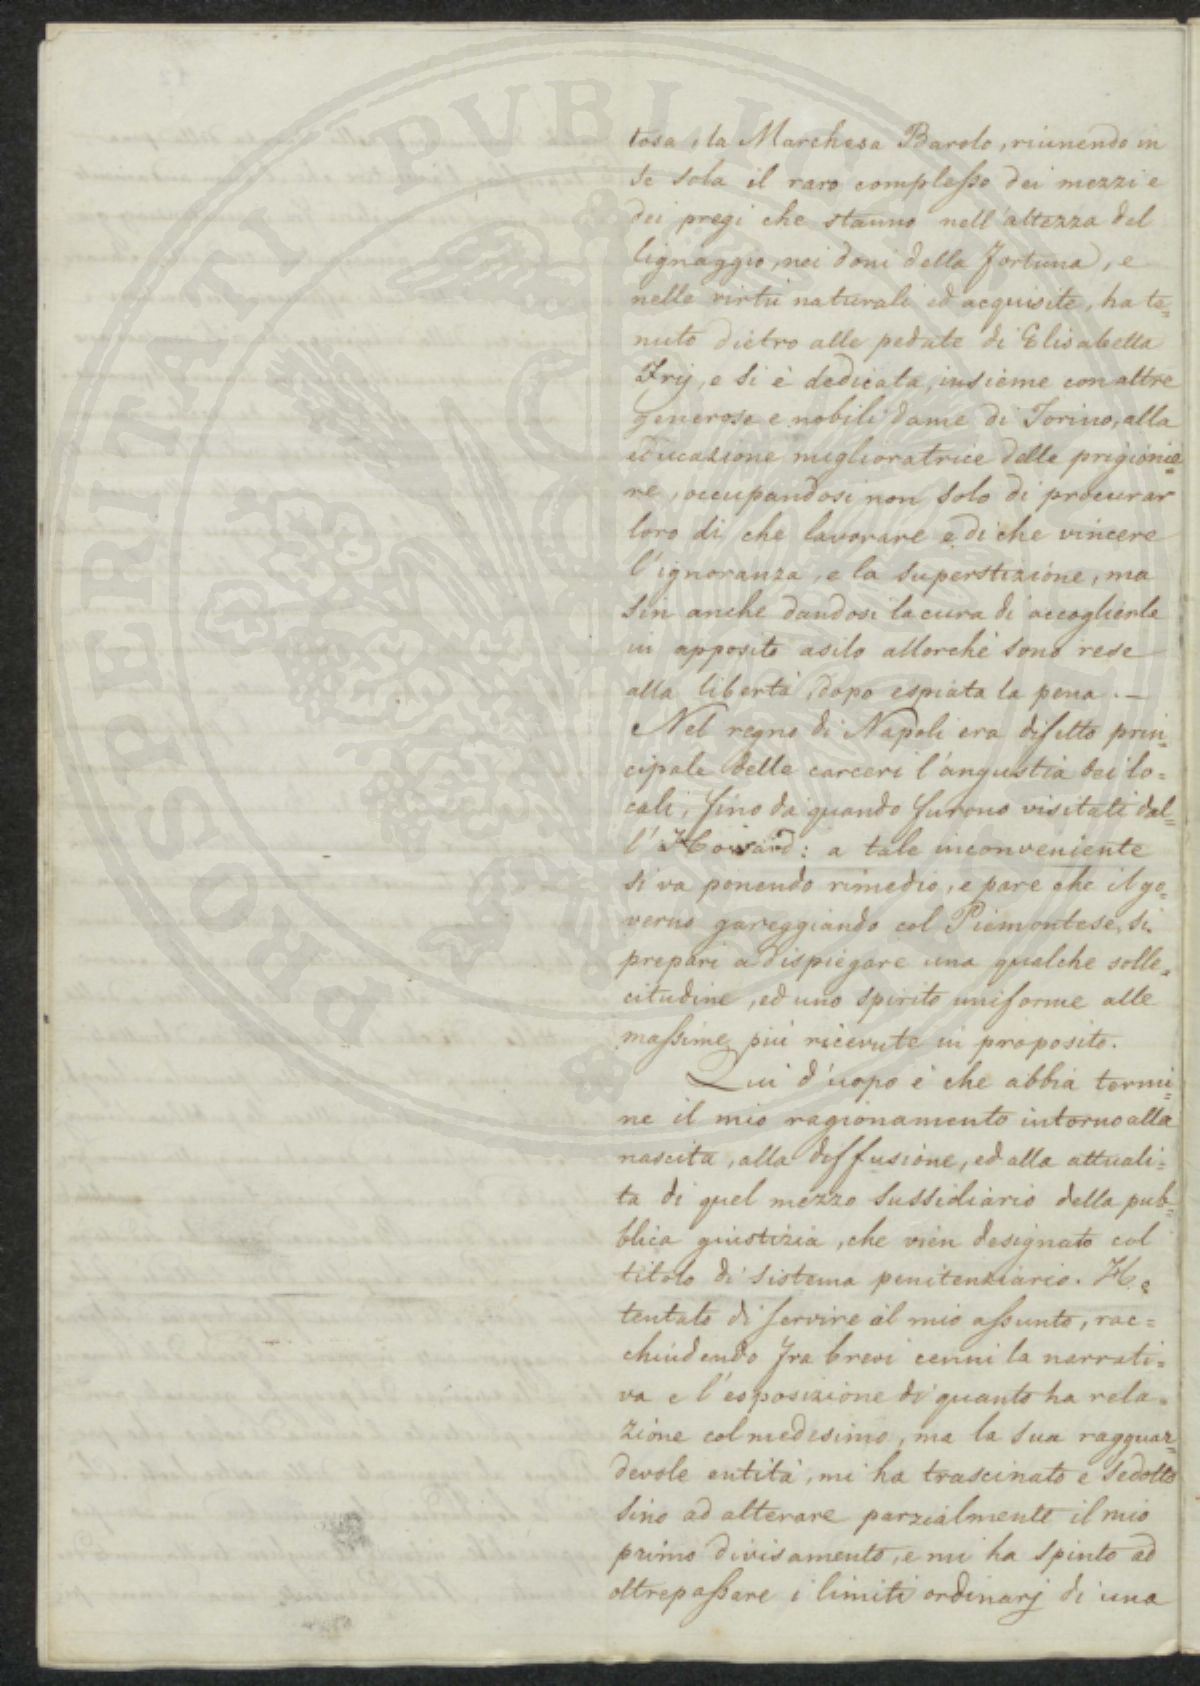 tosa, la Marchesa Barolo, riunendo in
se sola il raro complesso dei mezzi e
dei pregi che stanno nell'altezza del
lignaggio, nei doni della fortuna, e
nelle virtù naturali ed acquisite, ha te=
nuto dietro alle pedate di Elisabetta
Frij, e si è dedicata, insieme con altre
generose e nobili dame di Torino, alla
educazione miglioratrice delle prigionie=
re, occupandosi non solo di procurar
loro di che lavorare e di che vincere
l'ignoranza, e la superstizione, ma
sin anche dandosi la cura di accoglierle
in apposito asilo allorchè sono rese
alla libertà, dopo espiata la pena. —
Nel regno di Napoli era difetto prin=
cipale delle carceri l'angustia dei lo=
cali, fino da quando furono visitati dal=
l'Howard: a tale inconveniente
si va ponendo rimedio, e pare che il go=
verno gareggiando col Piemontese, si
prepari a dispiegare una qualche solle=
citudine, ed uno spirito uniforme alle
massime più ricevute in proposito.
Qui d'uopo è che abbia termi=
ne il mio ragionamento intorno alla
nascita, alla diffusione, ed alla attuali=
tà di quel mezzo sussidiario della pub=
blica giustizia, che vien designato col
titolo di sistema penitenziario. Ho
tentato di servire al mio assunto, rac=
chiudendo fra brevi cenni la narrati=
va e l'esposizione di quanto ha rela=
zione col medesimo, ma la sua ragguar=
devole entità, mi ha trascinato e sedotto
sino ad alterare parzialmente il mio
primo divisamento, e mi ha spinto ad
oltrepassare i limiti ordinarj di una
PROSPERITATI PUBLIC